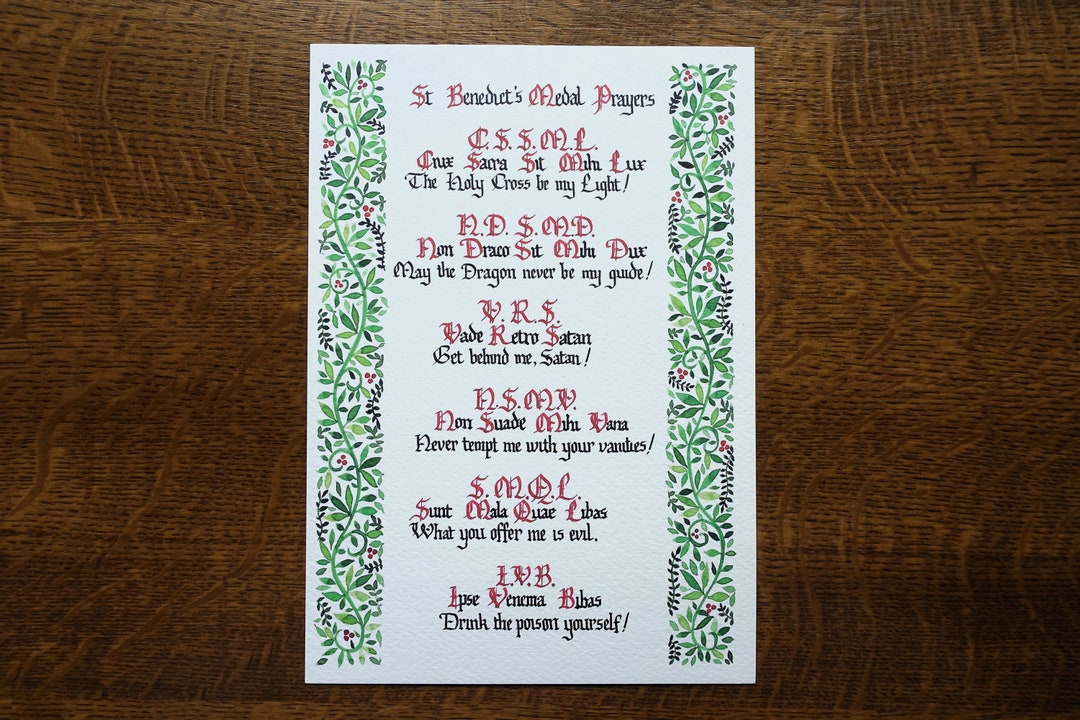 St Benedict's Medal Prayers
C. S. S. M. L.
Crux Sacra Sit Mihi Lux
The Holy Cross be my Light!
N. D. S. M. D.
Non Draco Sit Mihi Dux
May the Dragon never be my guide!
V. R. S.
Vade Retro Satan
Get behind me, Satan!
N. S. M. V.
Non Suade Mihi Vana
Never tempt me with your vanities!
S. M. Q. L.
Sunt Mala Quae Libas
What you offer me is evil.
I. V. B.
Ipse Venema Bibas
Drink the poison yourself!